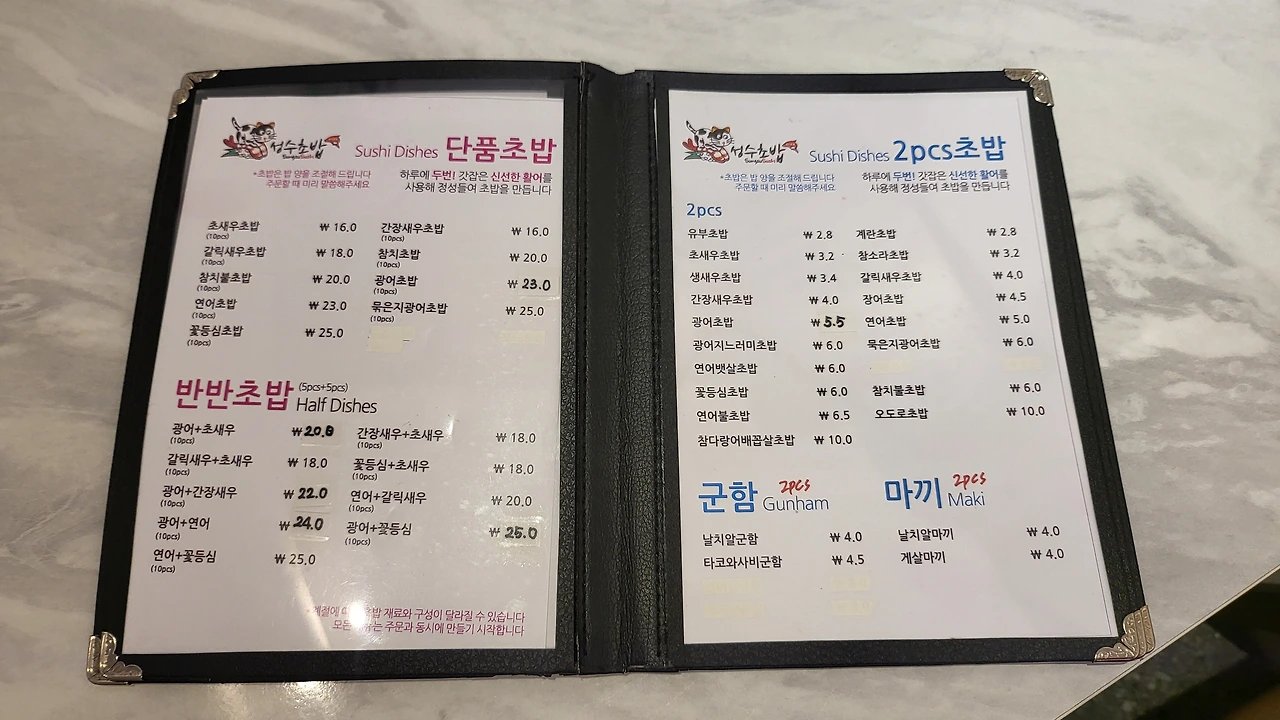 성수초밥
Sushi Dishes 단품초밥
*초밥은 밥 양을 조절해 드립니다
주문할 때 미리 말씀해주세요
하루에 두번! 갓잡은 신선한 활어를
사용해 정성들여 초밥을 만듭니다
초새우초밥 ₩ 16.0
(10pcs)
갈릭새우초밥 ₩ 18.0
(10pcs)
참치불초밥 ₩ 20.0
(10pcs)
연어초밥 ₩ 23.0
(10pcs)
꽃등심초밥 ₩ 25.0
(10pcs)
간장새우초밥 ₩ 16.0
(10pcs)
참치초밥 ₩ 20.0
(10pcs)
광어초밥 ₩ 23.0
(10pcs)
묵은지광어초밥 ₩ 25.0
(10pcs)
반반초밥 (5pcs+5pcs)
Half Dishes
광어+초새우 ₩20.0
(10pcs)
갈릭새우+초새우 ₩ 18.0
(10pcs)
광어+간장새우 ₩ 22.0
(10pcs)
광어+연어 ₩ 24.0
(10pcs)
연어+꽃등심 ₩ 25.0
(10pcs)
간장새우+초새우 ₩ 18.0
(10pcs)
꽃등심+초새우 ₩ 18.0
(10pcs)
연어+갈릭새우 ₩ 20.0
(10pcs)
광어+꽃등심 ₩ 25.0
(10pcs)
초밥 재료와 구성이 달라질 수 있습니다
주문과 동시에 만들기 시작합니다
성수초밥
Sushi Dishes 2pcs초밥
*초밥은 밥 양을 조절해 드립니다
주문할 때 미리 말씀해주세요
하루에 두번! 갓잡은 신선한 활어를
사용해 정성들여 초밥을 만듭니다
2pcs
유부초밥 ₩ 2.8
초새우초밥 ₩ 3.2
생새우초밥 ₩ 3.4
간장새우초밥 ₩ 4.0
광어초밥 ₩ 5.5
광어지느러미초밥 ₩ 6.0
연어뱃살초밥 ₩ 6.0
꽃등심초밥 ₩ 6.0
연어불초밥 ₩ 6.5
참다랑어배꼽살초밥 ₩ 10.0
계란초밥 ₩ 2.8
참소라초밥 ₩ 3.2
갈릭새우초밥 ₩ 4.0
장어초밥 ₩ 4.5
연어초밥 ₩ 5.0
묵은지광어초밥 ₩ 6.0
참치불초밥 ₩ 6.0
오도로초밥 ₩ 10.0
군함 2pcs
Gunham
날치알군함 ₩ 4.0
타코와사비군함 ₩ 4.5
마끼 2pcs
Maki
날치알마끼 ₩ 4.0
게살마끼 ₩ 4.0